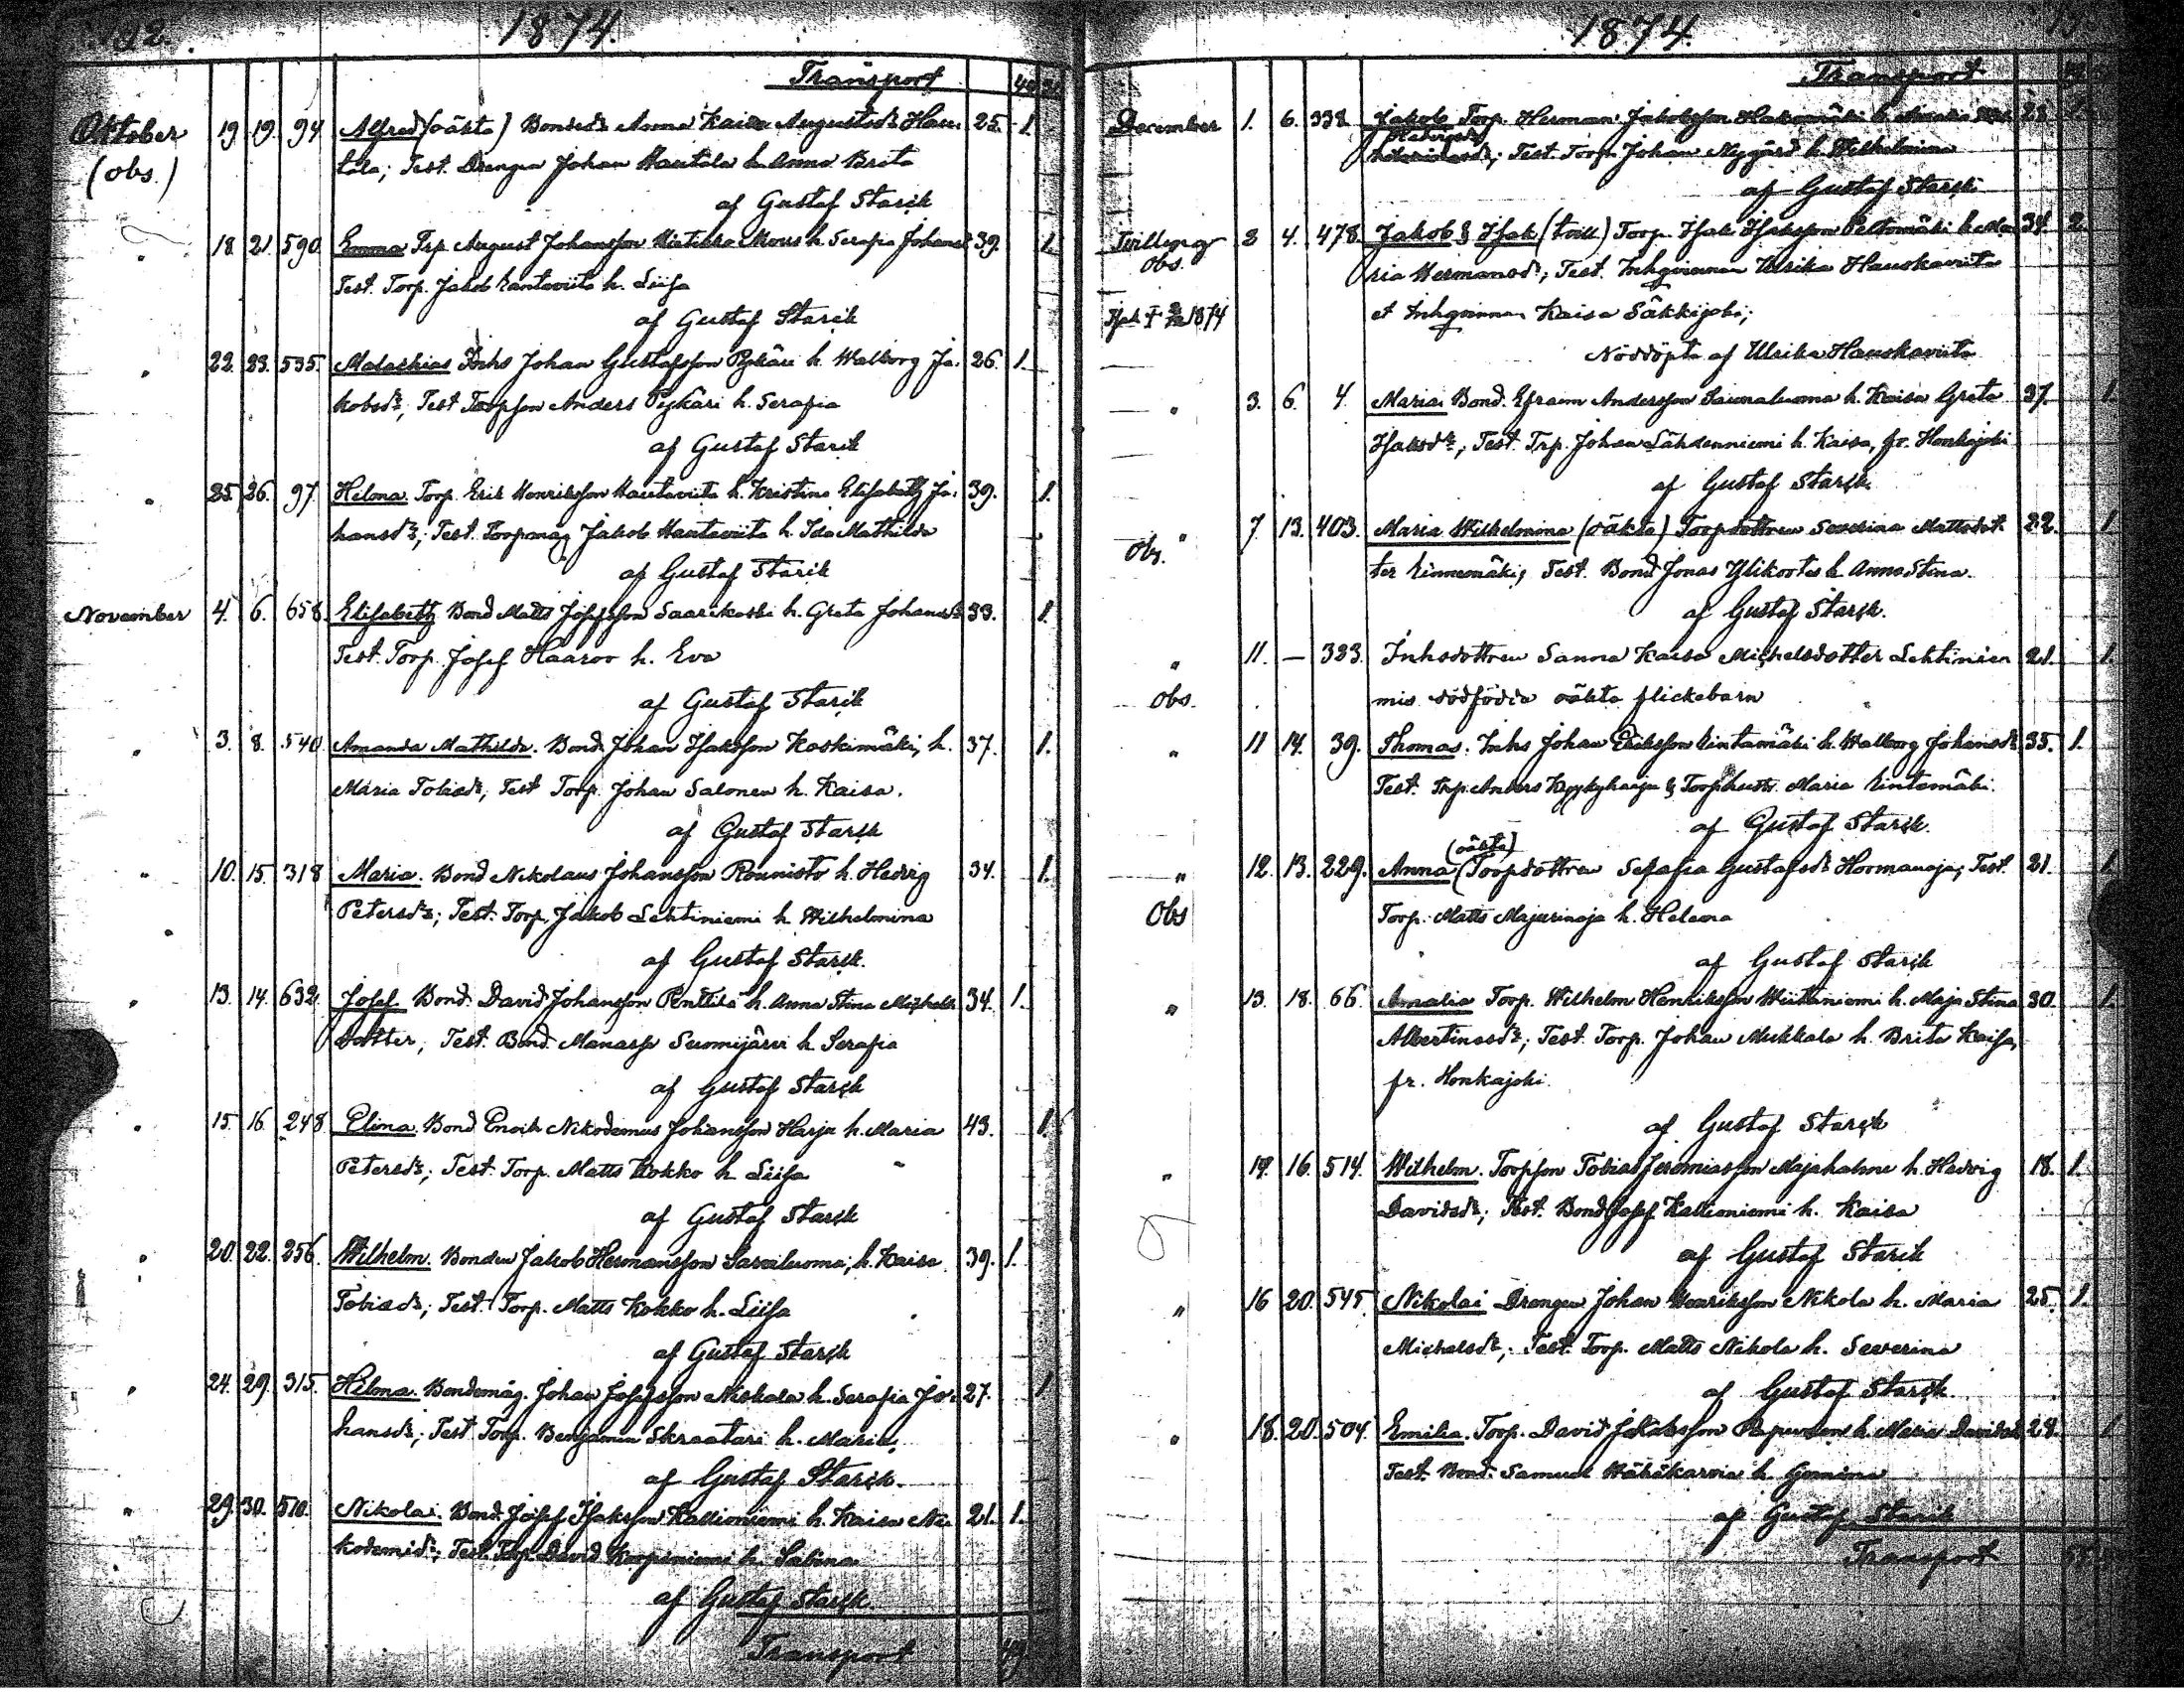 192. 1874.
Transport 44
Oktober 19 19. 94 Alfred (oäkta) Bondedr Anna Kaisa Augustsdr Hau- 25. 1.
(obs.) tala; Test. Drengen Johan Hautala h. Anna Brita
af Gustaf Starck
" 18. 21. 590. Emma Trp August Johansson h. Serafia Johansdr 39. 1.
Test. Torp. Jakob Rantaviita h. Liisa
af Gustaf Starck
" 22. 23. 535. Malachias Inhs Johan Gustafsson Pykäri h. Walborg Ja- 26. 1.
kobsdr, Test Torpson Anders Pykäri h. Serafia
af Gustaf Starck
" 25. 26. 97. Hilma. Torp. Erik Henriksson Hautaviita h. Kristina Elisabeth Jo- 39. 1.
hansdr; Test. Torpmåg Jakob Hautaviita h. Ida Mathilda
af Gustaf Starck
November 4. 6. 658. Elisabeth Bond Matts Josefsson Saarikoski h. Greta Johansdr 33. 1.
Test. Torp. Josef Haaroo h. Eva
af Gustaf Starck
" 3. 8. 540. Amanda Mathilda. Bond. Johan Isaksson Koskimäki, h. 37. 1.
Maria Tobiasdr, Test Torp. Johan Salonen h. Kaisa.
af Gustaf Starck
" 10. 15. 318 Maria. Bond Nikolaus Johansson Rounisto h. Hedvig 34. 1.
Petersdr; Test. Torp. Jakob Lehtiniemi h. Wilhelmina
af Gustaf Starck.
" 13. 14. 632. Josef Bond. David Johansson Penttilä h. Anna Stina Michels 34. 1.
dotter, Test. Bond. Manasse Suomijärvi h. Serafia
af Gustaf Starck
" 15. 16. 248 Elina. Bond Enoik Nikodemus Johansson Harju h. Maria 43. 1.
Petersdr; Test. Torp. Matts Kokko h. Liisa
af Gustaf Starck
" 20. 22. 256. Wilhelm. Bonden Jakob Hermansson Sarviluoma; h. Kaisa 39. 1.
Tobiasdr; Test. Torp. Matts Kokko h. Liisa
af Gustaf Starck
" 24. 29. 315. Hilma. Bondemåg. Johan Josefsson Niskala h. Serafia Jo- 27. 1
hansdr; Test Torp. Benjamin Skraatari h. Maria
af Gustaf Starck.
" 29. 30. 510. Nikolai. Bond. Josef Isaksson Kallioniemi h. Kaisa Ni- 21. 1.
kodemidr; Test. Torp. David Korpiniemi h. Sabina
af Gustaf Starck.
Transport 49
1874.
Transport
December 1. 6. 338. Jakob Torp. Herman Jakobsson Hakomäki h. Amalia 28
Test. Torp. Johan Nygård h. Wilhelmina
af Gustaf Starck
Tvillingar 2 4. 478. Jakob & Isak (tvill) Torp. Isak Isaksson Peltomäki h. Ma- 34. 2.
obs. ria Hermansdr; Test. Inhqvinnan Ulrika Hauskaviita
Isak † 1874 et Inhqvinnan Kaisa Säkkijoki;
Nöddöpta af Ulrika Hauskaviita
" 3. 6. 4. Maria. Bond. Efraim Andersson Saunaluoma h. Kaisa Greta 37. 1.
Isaksdr; Test. Trp. Johan Lähdenniemi h. Kaisa, fr. Honkajoki
af Gustaf Starck.
" 7 13. 403. Maria Wilhelmina (oäkta) Torpdottren Severina Mattsdot- 22. 1.
Obs. ter Rinnemäki; Test. Bond Jonas Ylikortes h. Anna Stina.
af Gustaf Starck.
" 11. — 383. Inhsdottren Sanna Kaisa Michelsdotter Lehtinien 21. 1.
Obs. mis dödfödda oäkta flickebarn
" 11 14. 39. Thomas. Inhs Johan Eriksson Rintamäki h. Walborg Johansdr 35. 1.
Test. Trp. Anders & Torphustr. Maria Rintamäki.
af Gustaf Starck.
(oäkta)
" 12. 13. 229. Anna (Torpdottren Serafia Gustafsdr Hormanoja; Test. 21. 1.
Obs Torp. Matts Majurinoja h. Helena
af Gustaf Starck
" 13. 18. 66. Amalia Torp. Wilhelm Henriksson Wiitaniemi h. Maja Stina 30. 1.
Albertinasdr; Test. Torp. Johan Mukkala h. Brita Kaisa,
fr. Honkajoki.
af Gustaf Starck
" 14. 16. 514. Wilhelm. Torpson Tobias Jeremiasson Majahalme h. Hedvig 18. 1.
Davidsdr; Test. Bond Josef Kallioniemi h. Kaisa
af Gustaf Starck
" 16 20. 545. Nikolai Drengen Johan Henriksson Nikola h. Maria 25. 1.
Michelsdr; Test. Torp. Matts Nikola h. Severina
af Gustaf Starck.
" 18. 20. 504. Emilia. Torp. David h. Maria Davidsdr 28. 1
Test. Bond. Samuel Wähäkarvia h.
af Gustaf Starck
Transport